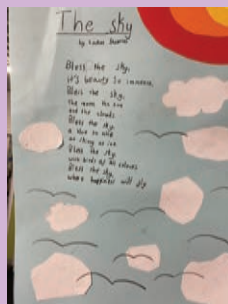 The sky
by
Bless the sky,
it's beauty so immense,
Bless the sky,
The moon the sun
and the clouds
Bless the sky
a blue so wild
as thing as ice
Bless the sky
with birds of all colours
Bless the sky,
where happiness will fly